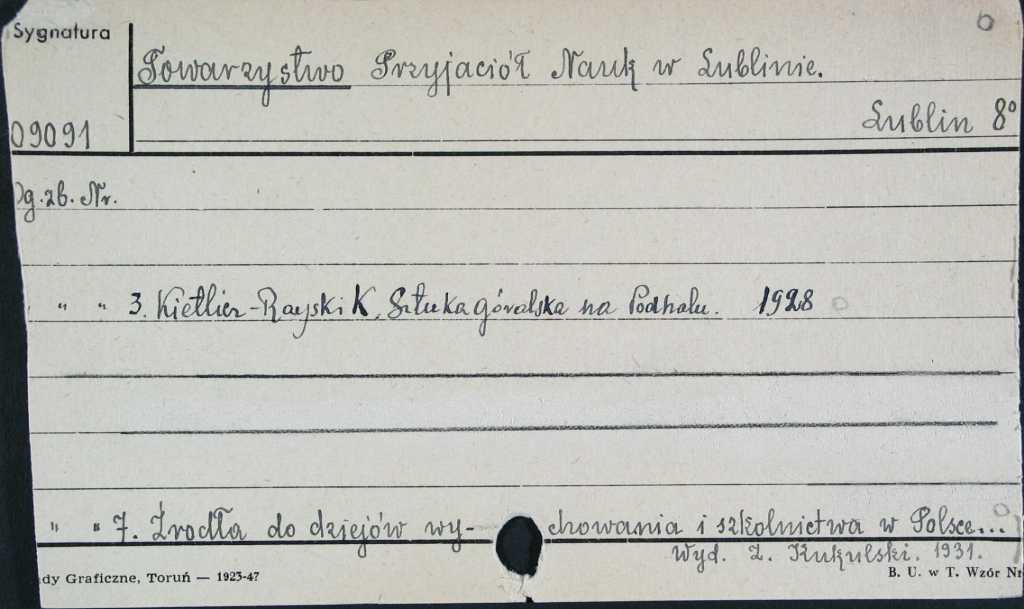 Sygnatura
Towarzystwo Przyjaciół Nauk w Lublinie.
Lublin 8°
09091
Og. zb. Nr.
" " 3. Kietlicz-Rayski K, Sztuka góralska na Podhalu. 1928
" " 7. Źrodła do dziejów wy- chowania i szkolnictwa w Polsce...
Wyd. Z. Kukulski. 1931.
dy Graficzne, Toruń — 1923-47
B. U. w T. Wzór Nr